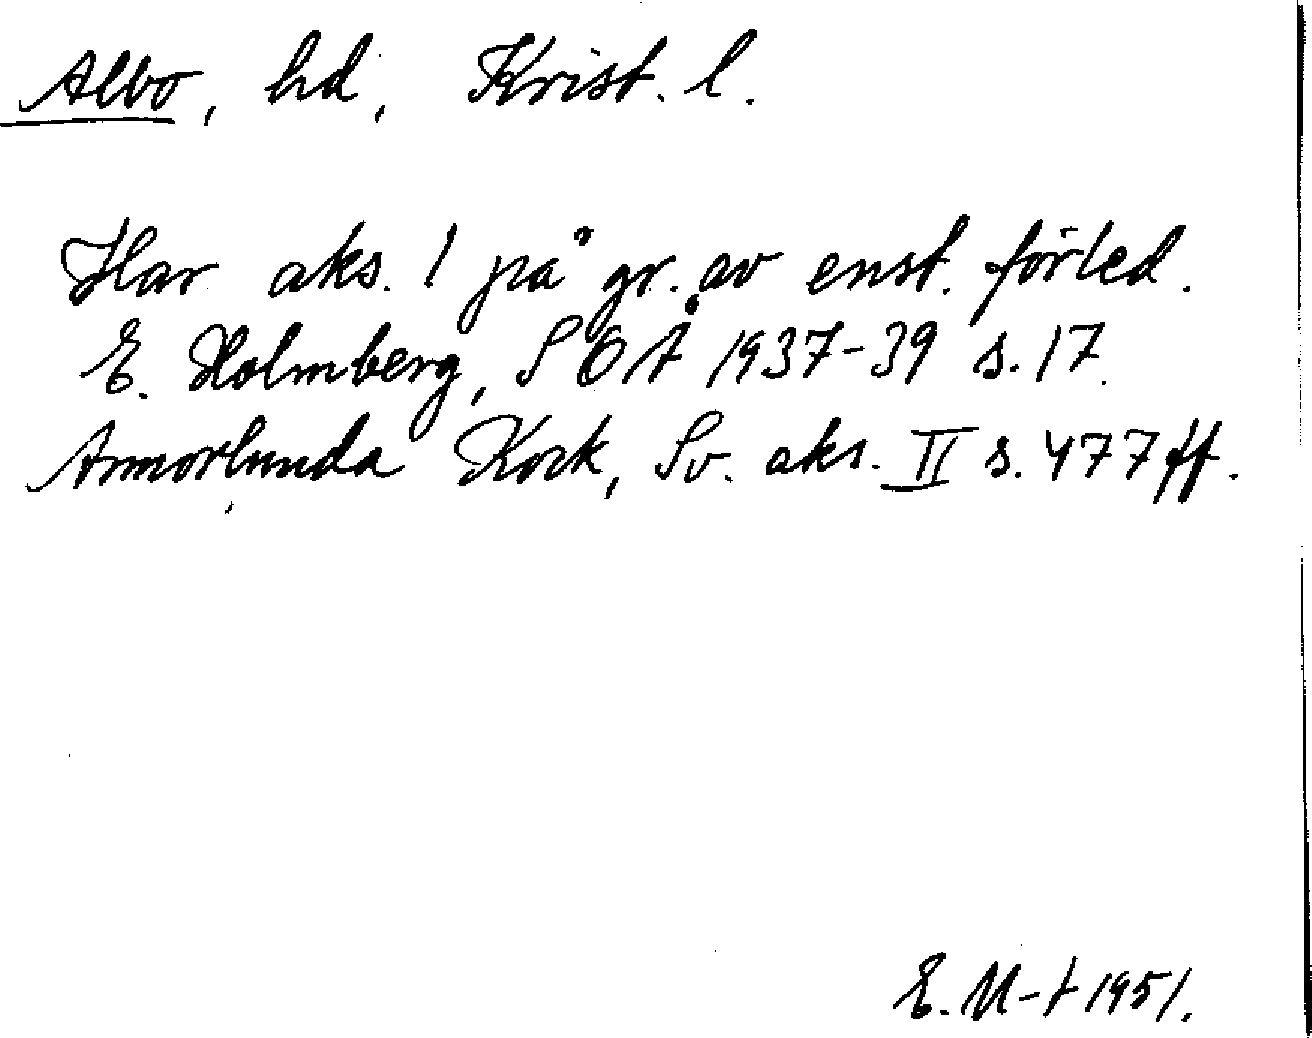 Albo, hd, Krist. l.
Har aks. 1 på gr. av enst. förled.
E. Holmberg, SOÅ 1937-39 s. 17.
Anmorlunda Kock, Sv. aks. II s. 477 ff.
E. M-t 1951.